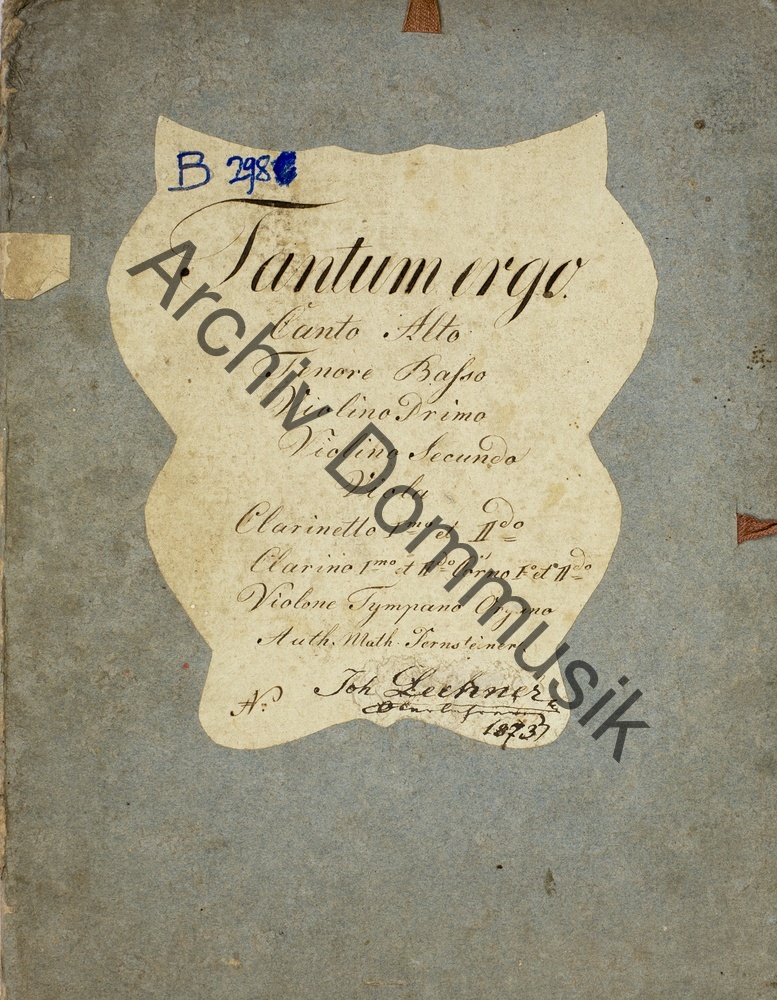 B 298
Tantum ergo.
Canto Alto
Tenore Basso
Violino Primo
Violino Secundo
Viola
Clarinetto 1mo et IIdo
Clarino 1mo et IIdo Corno Io et IIdo
Violone Tympano Organo
Auth. Math. Pernsteiner.
No
Joh Lechner
1873
Archiv Dommusik